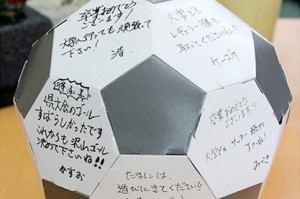 卒業おめでとう
ございます!
大学へ行っても頑張って
下さい!
大学でも
レギュラー勝ち
取ってくださいね!
得点王
県大会のゴール
すばらしかったです
これからも沢山ゴール
決めて下さいね!!
かずお
卒業おめでとう
ございます!!
大学でもサッカー続けて
下さいね!
みづき
たまには、
遊びにきてください!!